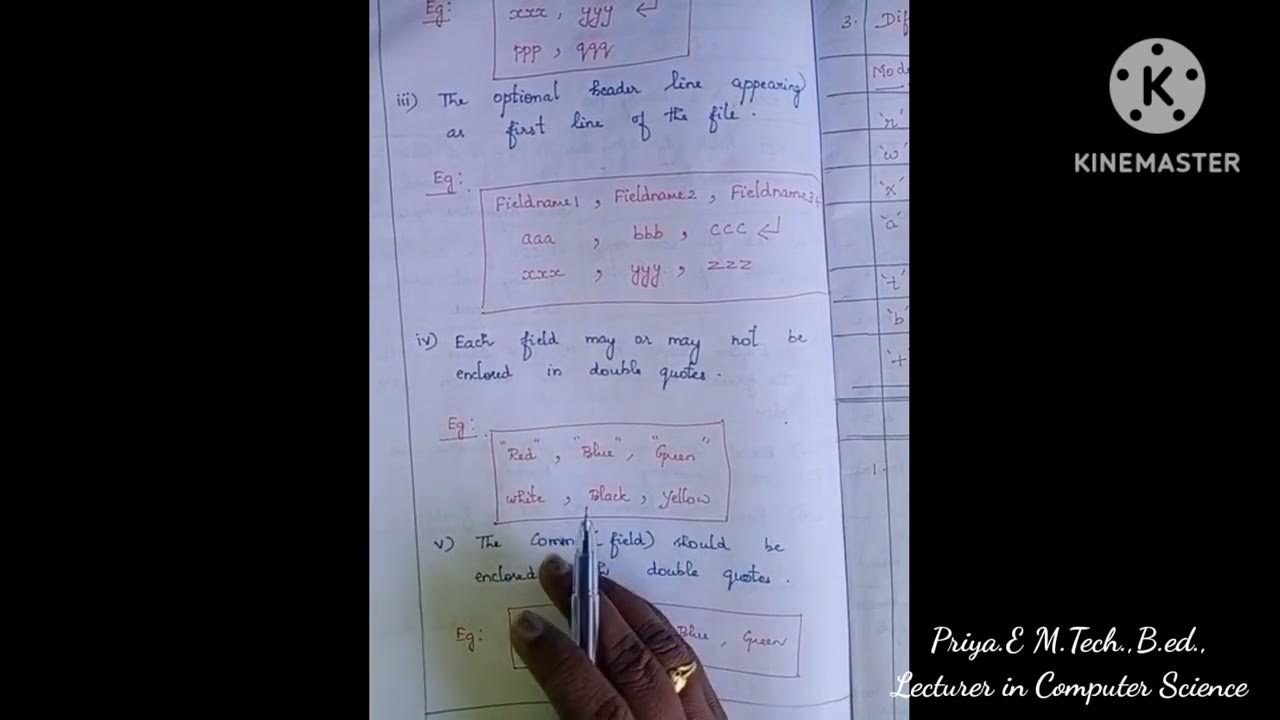 Eg:
xxx, yyy ↵
ppp, qqq
iii) The optional header line appearing
as first line of the file.
Eg:
Fieldname1, Fieldname2, Fieldname3
aaa, bbb, ccc ↵
xxx, yyy, zzz
iv) Each field may or may not be
enclosed in double quotes.
Eg:
"Red", "Blue", "Green"
white, Black, Yellow
v) The field) should be
enclosed double quotes.
Eg: Blue, Green
3. Dif
Mode
'r'
'w'
'x'
'a'
't'
'b'
'+'
1.
K
KINEMASTER
Priya.E M.Tech.,B.ed.,
Lecturer in Computer Science